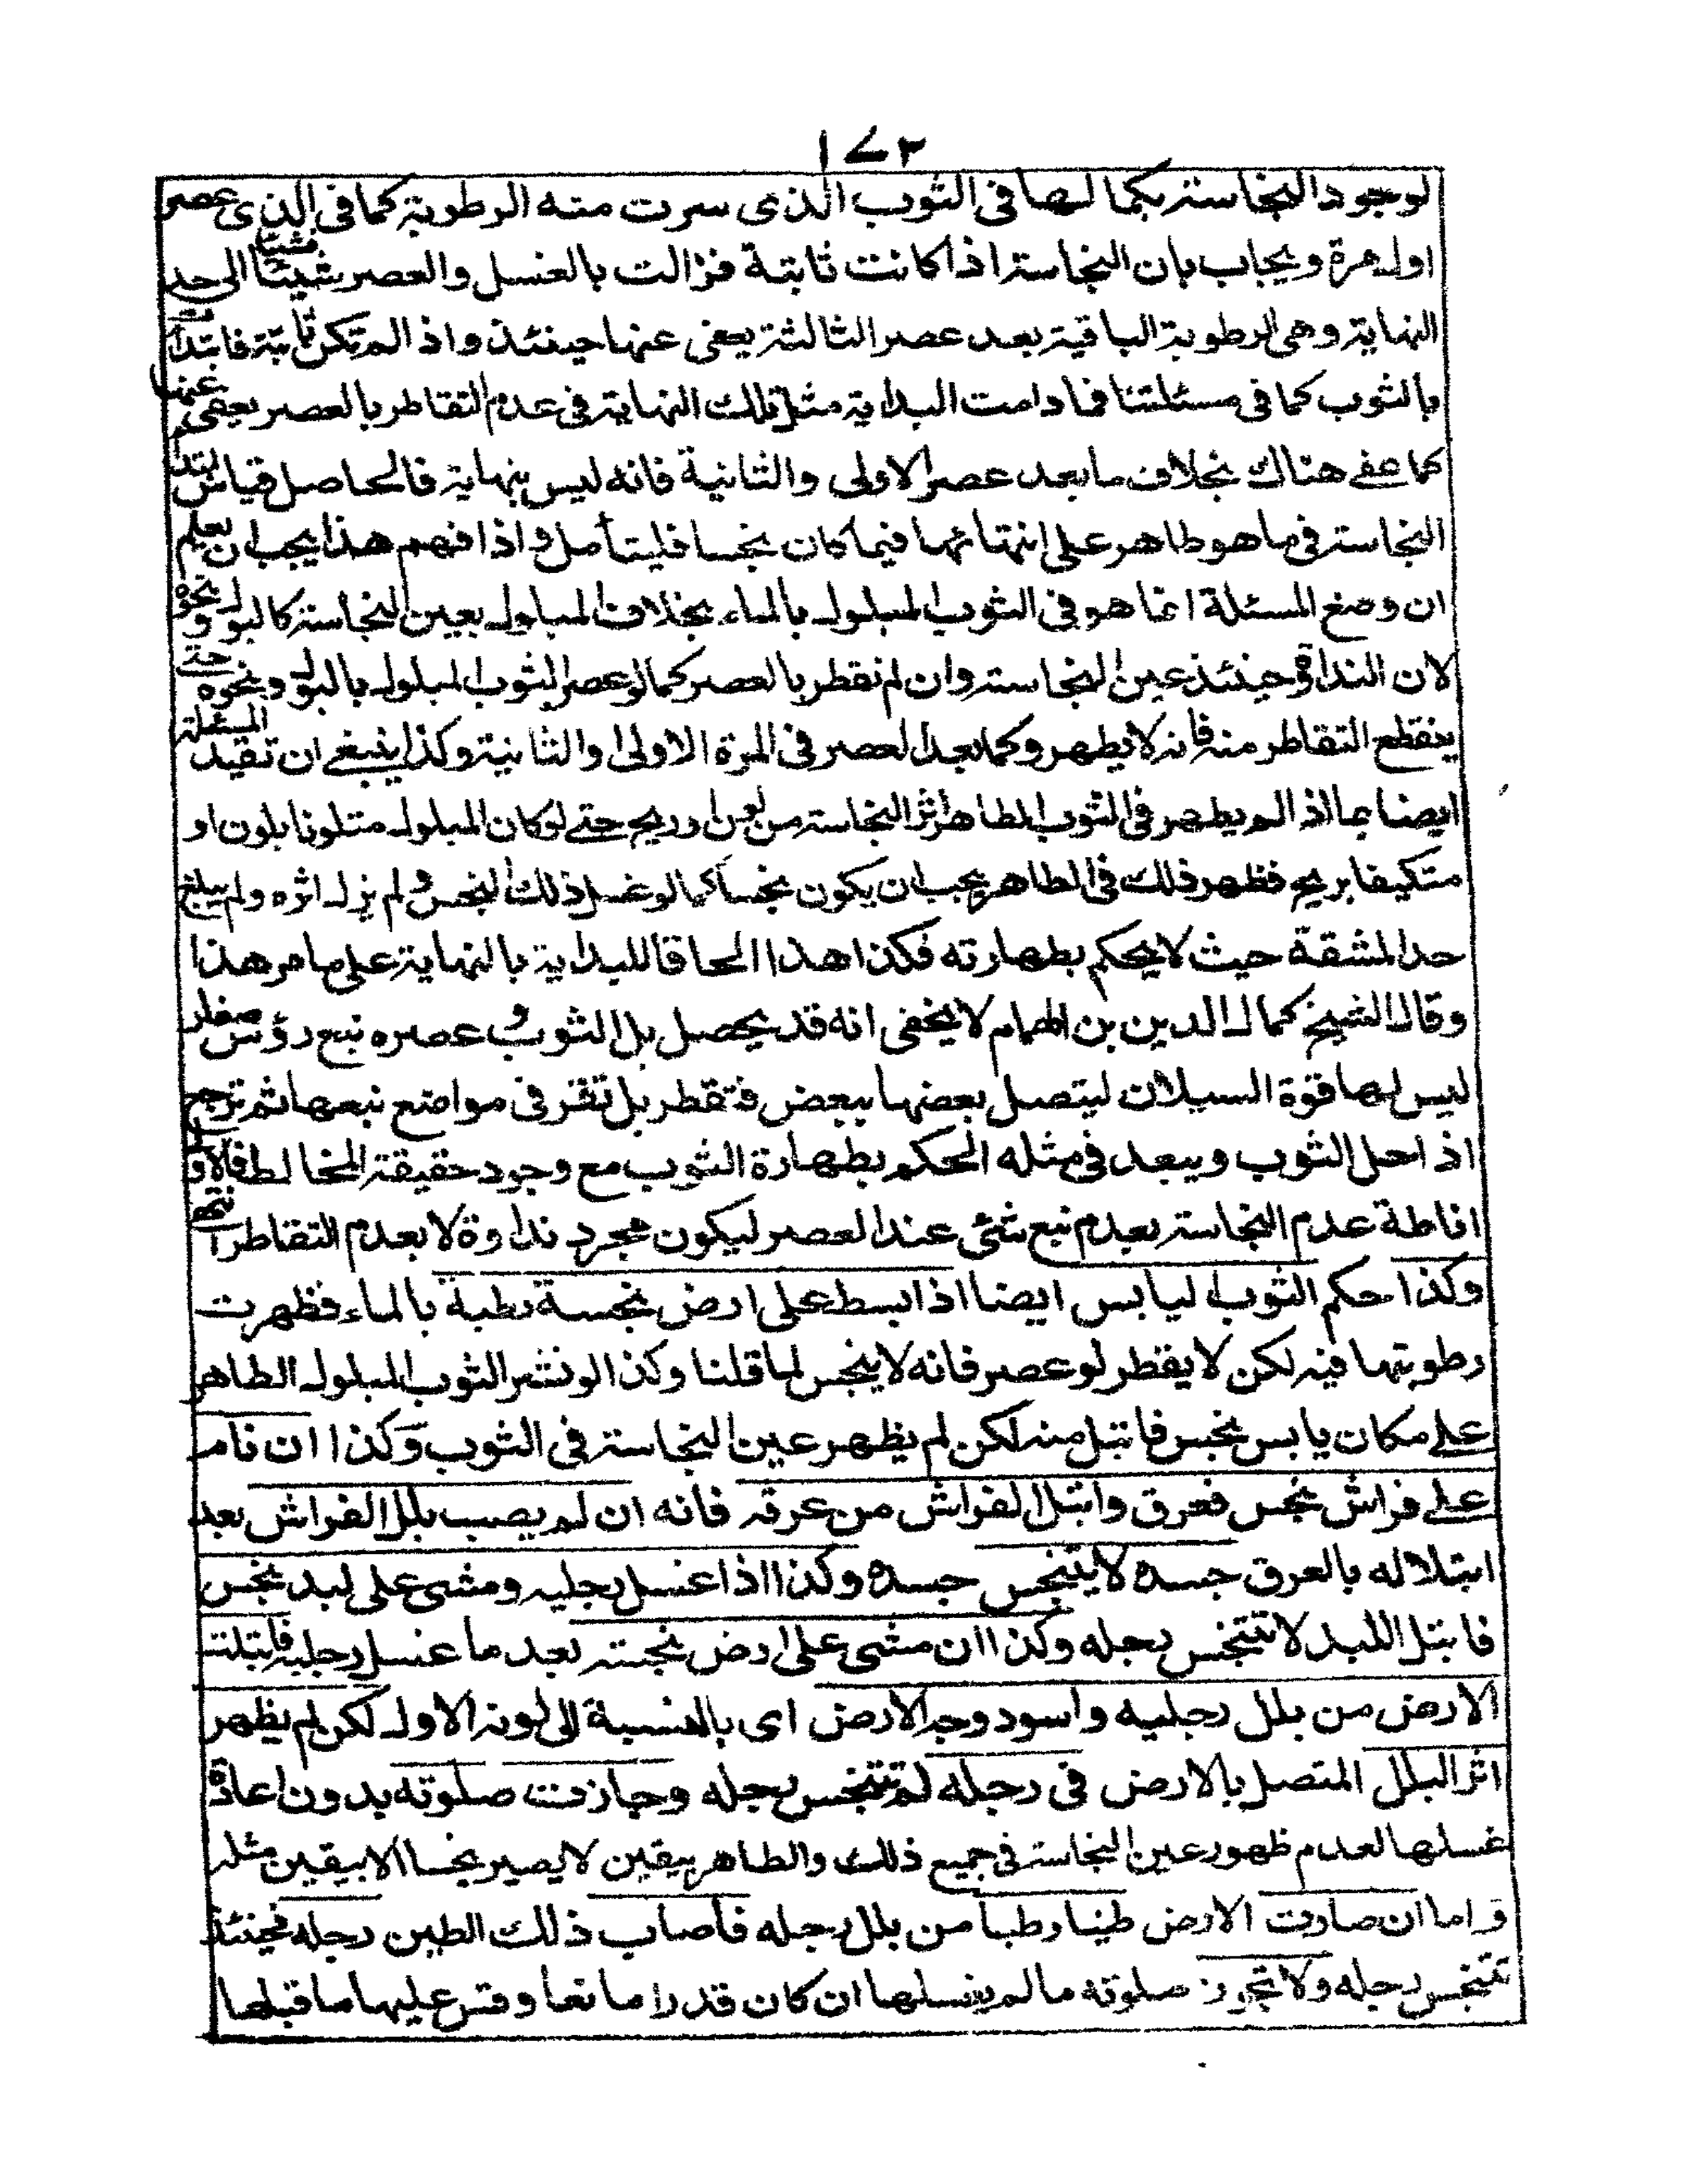 ١٧٣
لوجود النجاسة بكمالها فى الثوب الذى سرت منه الرطوبة كما فى الذى عصر
اول مرة ويجاب بان النجاسة اذا كانت ثابتة فزالت بالغسل والعصر شيئا فشيئا الى حد
النهاية وهى الرطوبة الباقية بعد عصر الثالثة يعفى عنها حينئذ واذا لم تكن ثابتة فابتدأت
بالثوب كما فى مسئلتنا فما دامت البداية مثل تلك النهاية فى عدم التقاطر بالعصر يعفى عنها
كما عفے هناك بخلاف ما بعد عصر الاولى والثانية فانه ليس بنهاية فالحاصل قياس ابتداء
النجاسة فى ما هو طاهر على انتهائها فيما كان نجسا فليتأمل واذا فهم هذا يجب ان يعلم
ان وضع المسئلة انما هو فى الثوب المبلول بالماء بخلاف المبلول بعين النجاسة كالبول ونحوه
لان النداوة حينئذ عين النجاسة وان لم تقطر بالعصر كما لو عصر الثوب المبلول بالبول ونحوه حتے
ينقطع التقاطر منه فانه لا يطهر وكما بعد العصر فى المرة الاولى والثانية وكذا ينبغے ان تقيد المسئلة
ايضا بما اذا لم يظهر فى الثوب الطاهر اثر النجاسة من لون او ريح حتے لو كان المبلول متلونا بلون او
متكيفا بريح فظهر ذلك فى الطاهر يجب ان يكون نجسا كما لو غسل ذلك النجس ولم يزل اثره ولم يبلغ
حد المشقة حيث لا يحكم بطهارته فكذا هذا الحاقا للبداية بالنهاية على ما مر هذا
وقال الشيخ كمال الدين بن الهمام لا يخفى انه قد يحصل بل الثوب وعصره نبع رؤس صغار
ليس لها قوة السيلان ليتصل بعضها ببعض فتقطر بل تقر فى مواضع نبعها ثم ترجع
اذا حل الثوب ويبعد فى مثله الحكم بطهارة الثوب مع وجود حقيقة المخالط فالاولى
اناطة عدم النجاسة بعدم نبع شئى عند العصر ليكون مجرد نداوة لا بعدم التقاطر انتهى
وكذا حكم الثوب اليابس ايضا اذا بسط على ارض نجسة رطبة بالماء فظهرت
رطوبتها فيه لكن لا يقطر لو عصر فانه لا ينجس لما قلنا وكذا لو نشر الثوب المبلول الطاهر
علے مكان يابس نجس فابتل منه لكن لم يظهر عين النجاسة فى الثوب وكذا ان نام
علے فراش نجس فعرق وابتل الفراش من عرقه فانه ان لم يصب بلل الفراش بعد
ابتلاله بالعرق جسده لا يتنجس جسده وكذا اذا غسل رجليه ومشى على لبد نجس
فابتل اللبد لا تتنجس رجله وكذا ان مشى على ارض نجسة بعد ما غسل رجليه فابتلت
الارض من بلل رجليه واسود وجه الارض اى بالنسبة الى لونه الاول لكن لم يظهر
اثر البلل المتصل بالارض فى رجله لم تتنجس رجله وجازت صلوته بدون اعادة
غسلها لعدم ظهور عين النجاسة فى جميع ذلك والطاهر بيقين لا يصير نجسا الا بيقين مثله
و اما ان صارت الارض طينا رطبا من بلل رجله فاصاب ذلك الطين رجله فحينئذ
تتنجس رجله ولا تجوز صلوته ما لم يغسلها ان كان قدرا مانعا وقس عليها ما قبلها